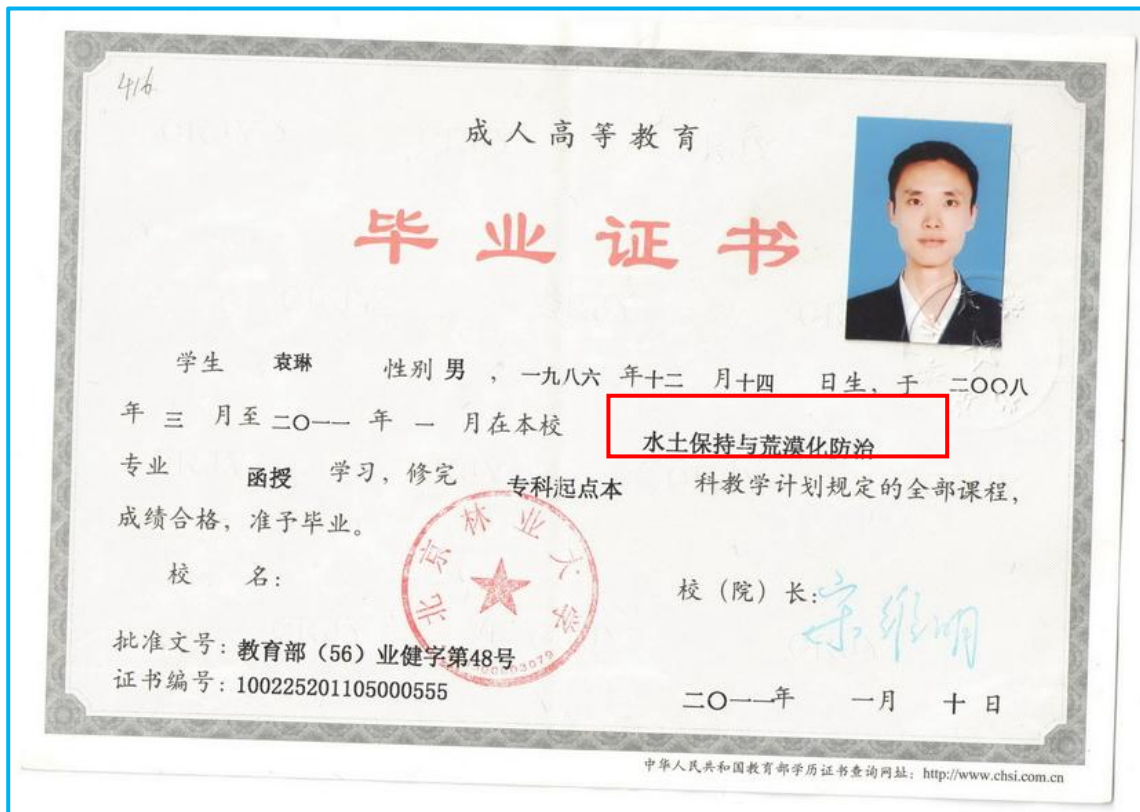 416
成人高等教育
毕业证书
学生 袁琳 性别 男 ，一九八六 年十二 月十四 日生，于 二〇〇八
年 三 月至 二〇一一 年 一 月在本校 水土保持与荒漠化防治
专业 函授 学习，修完 专科起点本 科教学计划规定的全部课程，
成绩合格，准予毕业。
北京林业大学
校 名：
校（院）长：宋维明
批准文号：教育部（56）业健字第48号
证书编号：100225201105000555
二〇一一年 一月 十 日
中华人民共和国教育部学历证书查询网址：http://www.chsi.com.cn